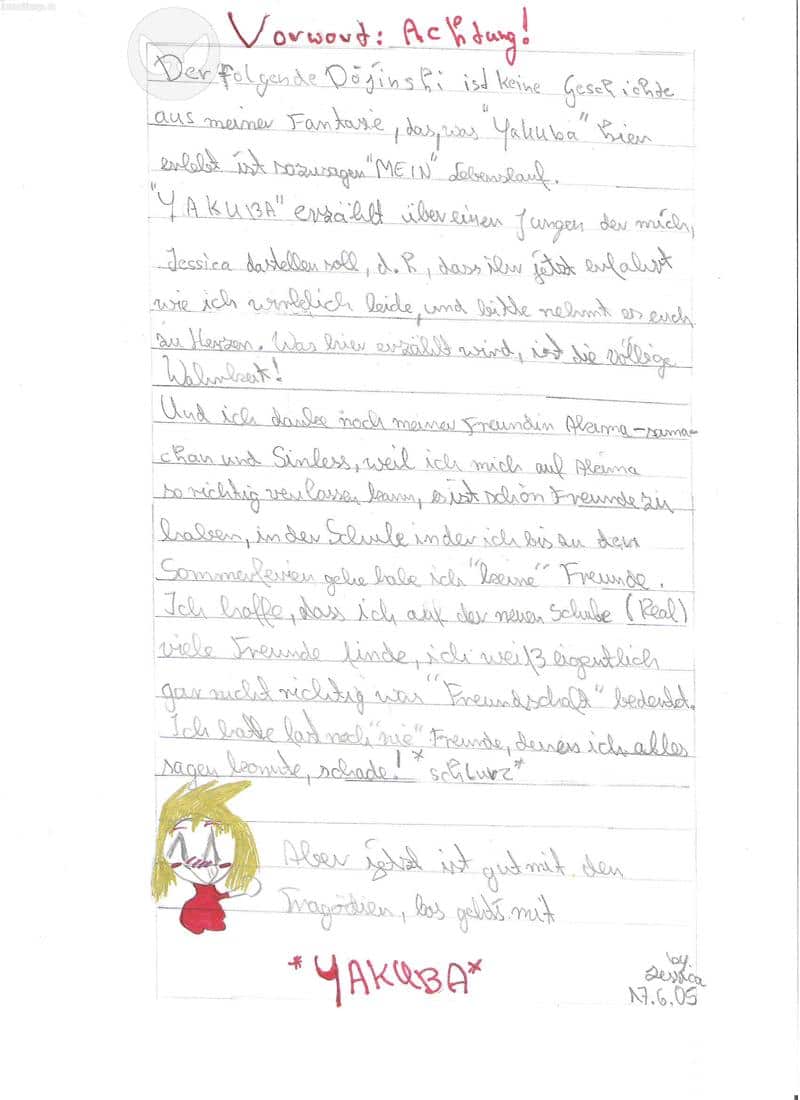 Vorwort: Achtung!
Der folgende Dōjinshi ist keine Geschichte
aus meiner Fantasie, das, was "Yakuba" hier
erlebt ist sozusagen "MEIN" Lebenslauf.
"YAKUBA" erzählt über einen Jungen der mich,
Jessica darstellen soll, d.h, dass ihr jetzt erfahrt
wie ich wirklich leide, und bitte nehmt es euch
zu Herzen. Was hier erzählt wird, ist die völlige
Wahrheit!
Und ich danke noch meiner Freundin Akima-sama-
chan und Sinless, weil ich mich auf Akima
so richtig verlassen kann, es ist schön Freunde zu
haben, in der Schule in der ich bis zu den
Sommerferien gehe habe ich "keine" Freunde.
Ich hoffe, dass ich auf der neuen Schule (Real)
viele Freunde finde, ich weiß eigentlich
gar nicht richtig was "Freundschaft" bedeutet.
Ich hatte fast noch "nie" Freunde, denen ich alles
sagen konnte, schade! *schlurz*
Aber jetzt ist gut mit den
Tragödien, los gehts mit
*YAKUBA*
by
Jessica
17.6.05